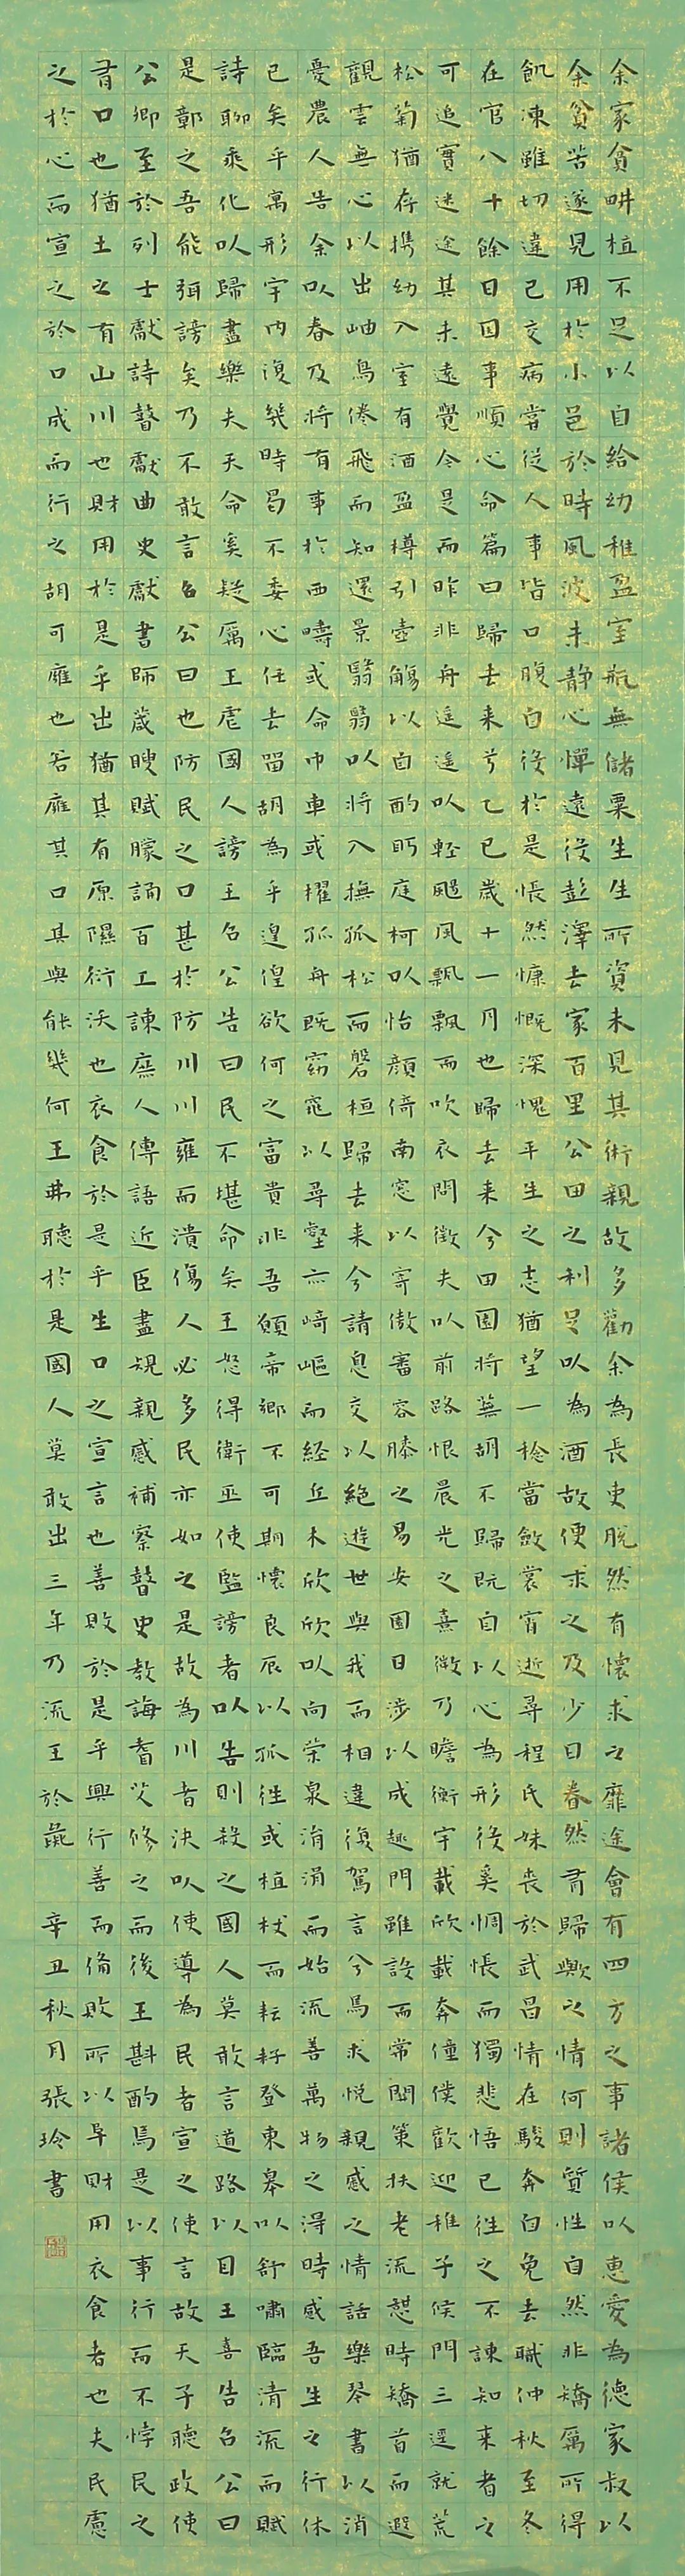 余家貧畊植不足以自給幼稚盈室瓶無儲粟生生所資未見其術親故多勸余為長吏脫然有懷求之靡途會有四方之事諸侯以惠愛為德家叔以
余貧苦遂見用於小邑於時風波未靜心憚遠役彭澤去家百里公田之利足以為酒故便求之及少日眷然有歸歟之情何則質性自然非矯厲所得
飢凍雖切違己交病嘗從人事皆口腹自役於是悵然慷慨深愧平生之志猶望一稔當斂裳宵逝尋程氏妹喪於武昌情在駿奔自免去職仲秋至冬
在官八十餘日因事順心命篇曰歸去来兮乙巳歲十一月也歸去来兮田園將蕪胡不歸既自以心為形役奚惆悵而獨悲悟已往之不諫知来者之
可追實迷途其未遠覺今是而昨非舟遥遥以輕颺風飄飄而吹衣問徵夫以前路恨晨光之熹微乃瞻衡宇載欣載奔僮僕歡迎稚子候門三逕就荒
松菊猶存携幼入室有酒盈樽引壺觴以自酌眄庭柯以怡顏倚南窓以寄傲審容膝之易安園日涉以成趣門雖設而常關策扶老流憩時矯首而遐
觀雲無心以出岫鳥倦飛而知還景翳翳以將入撫孤松而磐桓歸去来兮請息交以絶遊世與我而相違復駕言兮焉求悅親戚之情話樂琴書以消
憂農人告余以春及將有事於西疇或命巾車或櫂孤舟既窈窕以尋壑亦崎嶇而経丘木欣欣以向荣泉涓涓而始流善萬物之得時感吾生之行休
已矣乎寓形宇内復幾時曷不委心任去留胡為乎遑偟欲何之富貴非吾願帝鄉不可期懷良辰以孤往或植杖而耘耔登東皋以舒嘯臨清流而賦
詩聊乘化以歸盡樂夫天命奚疑厲王虐國人謗王召公告曰民不堪命矣王怒得衛巫使監謗者以告則殺之國人莫敢言道路以目王喜告召公曰
是鄣之吾能弭謗矣乃不敢言召公曰也防民之口甚於防川川雍而潰傷人必多民亦如之是故為川者決以使導為民者宣之使言故天子聽政使
公卿至於列士獻詩瞽獻曲史獻書師箴瞍賦矇誦百工諫庶人傳語近臣盡規親戚補察瞽史教誨耆艾修之而後王斟酌焉是以事行而不悖民之
有口也猶土之有山川也財用於是乎出猶其有原隰衍沃也衣食於是乎生口之宣言也善敗於是乎興行善而備敗所以阜財用衣食者也夫民慮
之於心而宣之於口成而行之胡可廱也若廱其口其與能幾何王弗聽於是國人莫敢出三年乃流王於彘 辛丑秋月張玲書